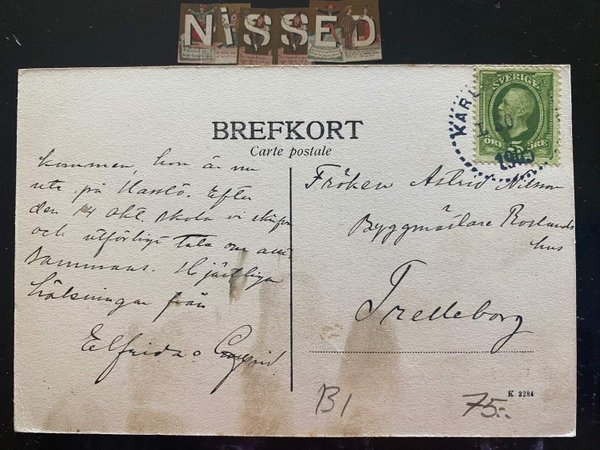 NISSED
BREFKORT
Carte postale
kommen, hon är nu
ute på Hasslö. Efter
den 14 okt. skola vi
och utförligt tala om allt
sammans. Hjärtliga
hälsningar från
Elfrida o
SVERIGE
5
ÖRE ÖRE
KARL
1905
Fröken Astrid Nilsson
Byggmästare Roslunds
hus
Trelleborg
B1
75:-
K 3284